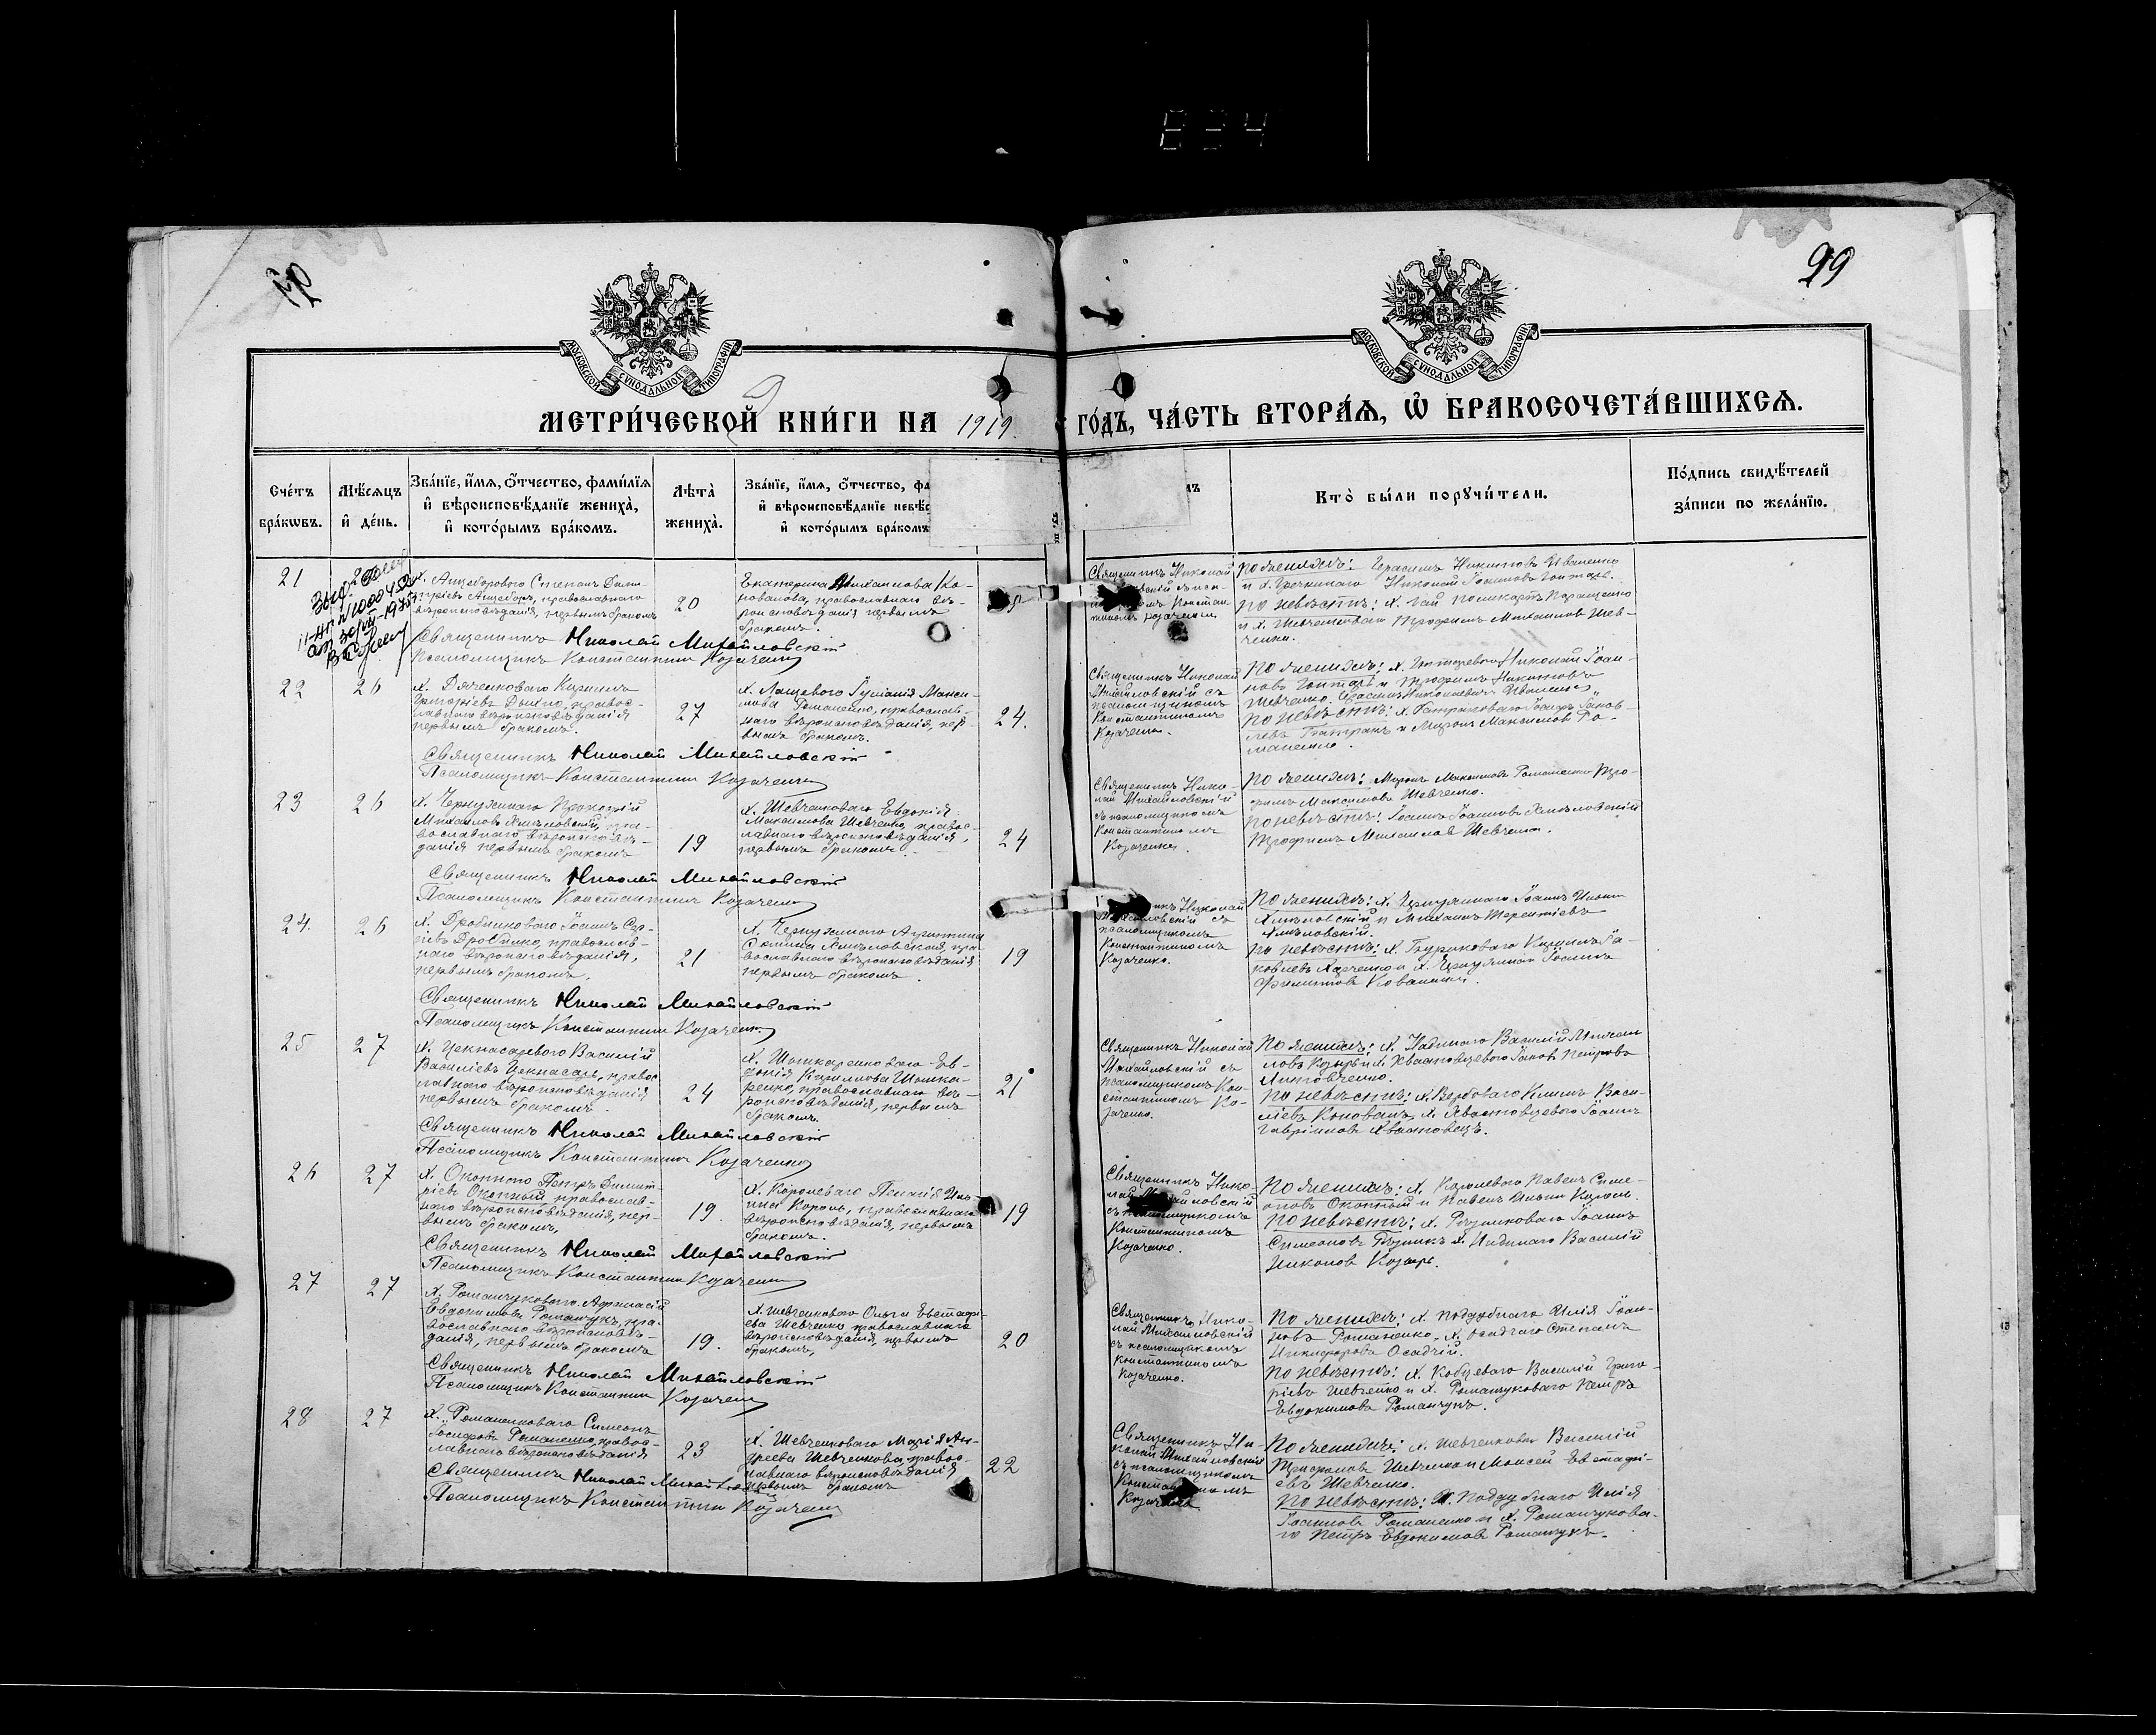 99
МОСКОВСКОЙ СУНОДАЛЬНОЙ ТИПОГРАФІИ
МОСКОВСКОЙ СУНОДАЛЬНОЙ ТИПОГРАФІИ
МЕТРИ́ЧЕСКОЙ КНИ́ГИ НА 1919 ГО́ДЪ, ЧА́СТЬ ВТОРА́Я, Ѡ҆ БРАКОСОЧЕТА́ВШИХСЯ.
Сче́тъ бра́кѡвъ.
Мѣ́сяцъ и҆ де́нь.
Зва́нїе, и҆́мя, ѻ҆́тчество, фами́лїя
и҆ вѣроисповѣ́данїе жениха̀,
и҆ кото́рымъ бра́комъ.
Лѣта̀ жениха̀.
Зва́нїе, и҆́мя, ѻ҆́тчество,
и҆ вѣроисповѣ́данїе
и҆ кото́рымъ бра́комъ
Кто̀ бы́ли порꙋчи́тели.
По́дпись свидѣ́телей
за́писи по жела́нїю.
21
православнаго
вѣроисповѣданія, первымъ бракомъ
20
Екатерина Михаилова Ко-
новалова, православнаго вѣ-
роисповѣданія первымъ
бракомъ.
Священникъ Николай
По женихѣ: Герасимъ Никитовъ Иваненко
Николай Іоанновъ Гонтарь.
По невѣстѣ: х. Гай Поликарпъ Геращенко
и х. Шевченковаго Трофимъ Михаиловъ Шев-
ченко.
Священникъ Николай Михайловскій
Псаломщикъ Константинъ Козаченко
22
26
х. Дяченковаго Кириллъ
Григоріевъ правос-
лавнаго вѣроисповѣданія
первымъ бракомъ.
27
х. Лащеваго Іуліанія Макси-
мова Романенко, православ-
наго вѣроисповѣданія, пер-
вымъ бракомъ.
24.
Священникъ Николай
Михайловскій съ
псаломщикомъ
Константиномъ
Козаченко.
По женихѣ: х. Николай Іоан-
новъ Гонтарь и Трофимъ Никитовъ
Шевченко. Герасимъ Николаевичъ Иваненко
По невѣстѣ: х. Іосифъ Іаков-
левъ и Миронъ Максимовъ Ро-
маненко.
Священникъ Николай Михайловскій
Псаломщикъ Константинъ Козаченко
23
26
х. Чернужнаго Прокопій
Михаиловъ Хмѣловскій, пра-
вославнаго вѣроисповѣ-
данія первымъ бракомъ
19
х. Шевченковаго Евдокія
Максимова Шевченко, правос-
лавнаго вѣроисповѣданія,
первымъ бракомъ.
24
Священникъ Нико-
лай Михайловскій
съ псаломщикомъ
Константиномъ
Козаченко.
По женихѣ: Миронъ Максимовъ Романенко Тро-
фимъ Максимовъ Шевченко.
По невѣстѣ: Іоаннъ Іоанновъ Хмѣловскій
Трофимъ Михаиловъ Шевченко.
Священникъ Николай Михайловскій
Псаломщикъ Константинъ Козаченко
24.
26
х. Дробинковаго Іоаннъ Сер-
гіевъ православ-
наго вѣроисповѣданія,
первымъ бракомъ.
21
х. Чернужнаго Агриппина
Хмѣловская, пра-
вославнаго вѣроисповѣданія
первымъ бракомъ.
19
Николай
Михайловскій съ
псаломщикомъ
Константиномъ
Козаченко.
По женихѣ: х. Чернужнаго Іоаннъ Ильинъ
Хмѣловскій и Михаилъ Терентіевъ
Хмѣловскій.
По невѣстѣ: х. Кириллъ Іа-
ковлевъ Харченко и х. Іоаннъ
Филипповъ
Священникъ Николай Михайловскій
Псаломщикъ Константинъ Козаченко
25
27
х. Цекнасареваго Василій
Василіевъ Цекнасарь, правос-
лавнаго вѣроисповѣданія
первымъ бракомъ.
24
х. Шошкаренковаго Ев-
докія Кириллова Шошка-
ренко, православнаго вѣ-
роисповѣданія, первымъ
бракомъ.
21
Священникъ Николай
Михайловскій съ
псаломщикомъ Кон-
стантиномъ Ко-
заченко.
По женихѣ: х. Василій
Козырь и х. Хвастовцеваго Іаковъ Петровъ
Литовченко.
По невѣстѣ: х. Вербоваго Климъ Васи-
ліевъ Коновалъ, х. Хвастовцеваго Іоаннъ
Гавріиловъ Хвастовецъ.
Священникъ Николай Михайловскій
Псаломщикъ Константинъ Козаченко
26
27
х. Окопного Петръ Димит-
ріевъ Окопный православ-
наго вѣроисповѣданія, пер-
вымъ бракомъ.
19.
х. Королеваго Пелагія Иль-
ина Король, православнаго
вѣроисповѣданія, первымъ
бракомъ.
19
Священникъ Нико-
лай Михайловскій
съ псаломщикомъ
Константиномъ
Козаченко.
По женихѣ: х. Королеваго Павелъ Симе-
оновъ Окопный и Павелъ Ильинъ Король.
По невѣстѣ: х. Рѣзниковаго Іоаннъ
Симеоновъ Рѣзникъ х. Василій
Никоновъ Козырь.
Священникъ Николай Михайловскій
Псаломщикъ Константинъ Козаченко
27
27
х. Романчуковаго Афанасій
Евдокимовъ Романчукъ, пра-
вославнаго вѣроисповѣ-
данія, первымъ бракомъ
19.
х. Шевченковаго Ольга Евстафі-
ева Шевченко православнаго
вѣроисповѣданія, первымъ
бракомъ,
20
Священникъ Нико-
лай Михайловскій
съ псаломщикомъ
Константиномъ
Козаченко.
По женихѣ: х. Поддубнаго Илія Іоан-
новъ Романенко, х. Осадчаго Степанъ
Никифоровъ Осадчій.
По невѣстѣ: х. Кобцеваго Василій Григо-
ріевъ Шевченко и х. Романчуковаго Петръ
Евдокимовъ Романчукъ.
Священникъ Николай Михайловскій
Псаломщикъ Константинъ Козаченко
28
27
х. Романенковаго Симеонъ
Іосифовъ Романенко, правос-
лавнаго вѣроисповѣданія
23
х. Шевченковаго Марія Ан-
дреева Шевченкова, правос-
лавнаго вѣроисповѣданія
первымъ бракомъ
22
Священникъ Ни-
колай Михайловскій
съ псаломщикомъ
По женихѣ: х. Шевченковаго Василій
Трифоновъ Шевченко и Моисей Евстафі-
евъ Шевченко.
По невѣстѣ: х. Поддубнаго Илія
Іоанновъ Романенко и х. Романчукова-
го Петръ Евдокимовъ Романчукъ.
Священникъ Николай Михайловскій
Псаломщикъ Константинъ Козаченко